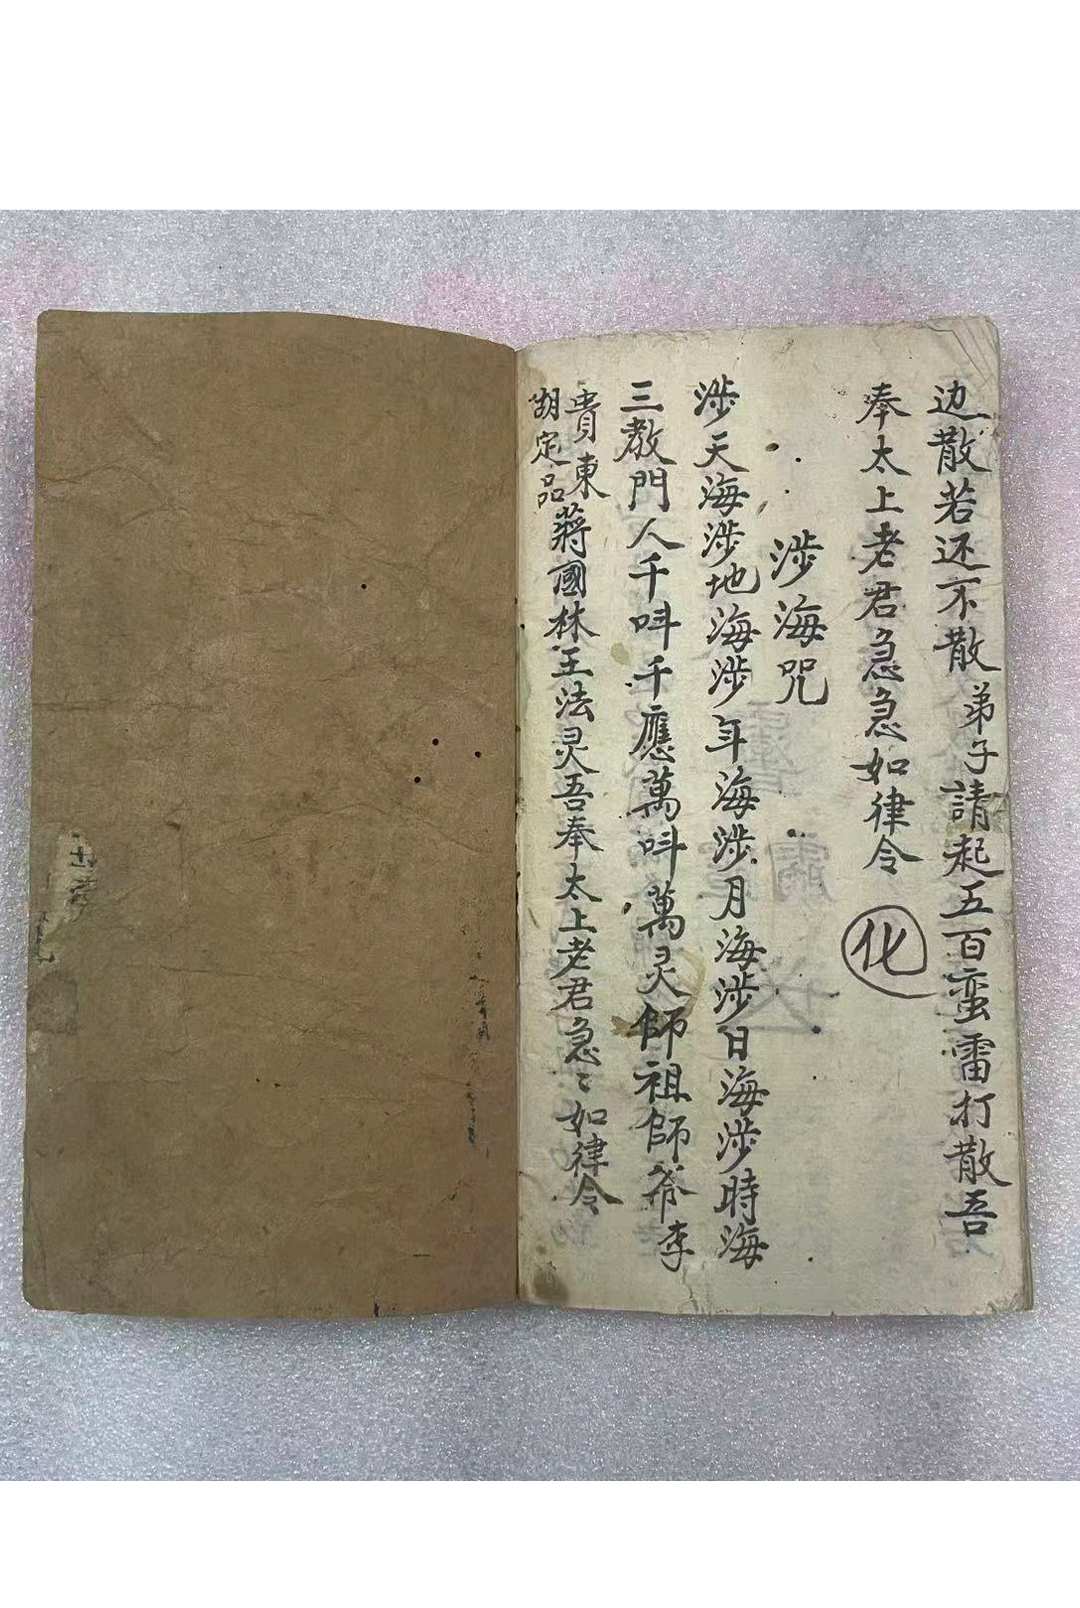 边散若还不散弟子請起五百蛮雷打散吾
奉太上老君急急如律令 化
涉海咒
涉天海涉地海涉年海涉月海涉日海涉時海
三教門人千呌千應萬呌萬灵師祖師爷李
貴東
胡定品
蔣國林王法灵吾奉太上老君急〻如律令